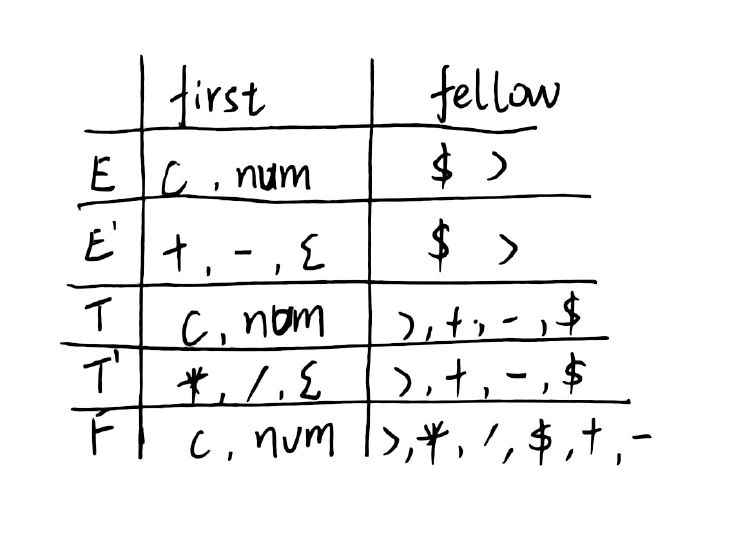 first fellow
E (, num $ )
E' +, -, ε $ )
T (, num ), +, -, $
T' *, /, ε ), +, -, $
F (, num ), *, /, $, +, -